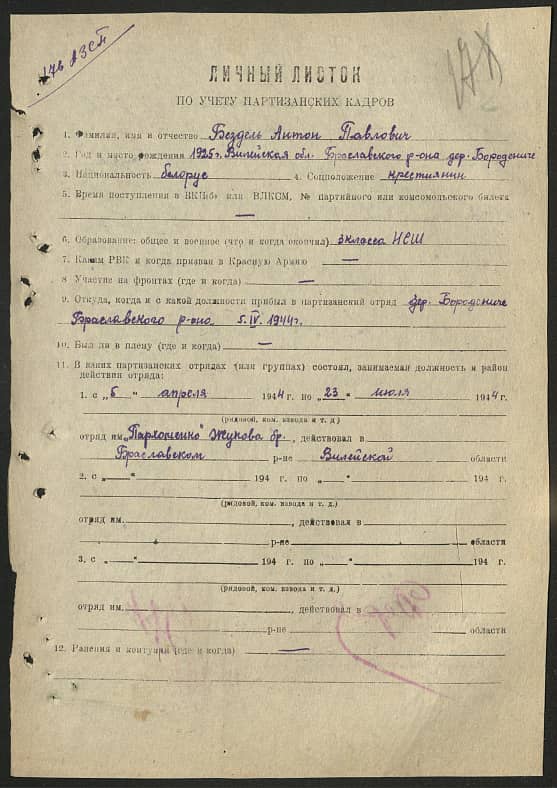 ЛИЧНЫЙ ЛИСТОК
ПО УЧЕТУ ПАРТИЗАНСКИХ КАДРОВ
1. Фамилия, имя и отчество Бездель Антон Павлович
2. Год и место рождения 1925г. Вилейская обл. Браславского р-она дер. Бородениче
3. Национальность белорус 4. Соцположение крестиянин
5. Время поступления в ВКП(б) или ВЛКСМ, № партийного или комсомольского билета
—
6. Образование: общее и военное (что и когда окончил) 3 класса НСШ
7. Каким РВК и когда призван в Красную Армию —
8 Участие на фронтах (где и когда) —
9. Откуда, когда и с какой должности прибыл в партизанский отряд дер. Бородениче
Браславского р-она 5.IV.1944г.
10. Был ли в плену (где и когда) —
11. В каких партизанских отрядах (или группах) состоял, занимаемая должность и район
действия отряда:
1. с „5“ апреля 1944 г. по „23“ июля 1944 г.
(рядовой, ком. взвода и т. д.)
отряд им. „Пархоменко“ Жукова бр., действовал в
Браславском р-не Вилейской области
2. с „—“ 194 г. по „—“ 194 г.
(рядовой, ком. взвода и т. д.)
отряд им. , действовал в
р-не области
3. с „—“ 194 г. по „—“ 194 г.
(рядовой, ком. взвода и т. д.)
отряд им. , действовал в
р-не области
12. Ранения и контузии (где и когда) —